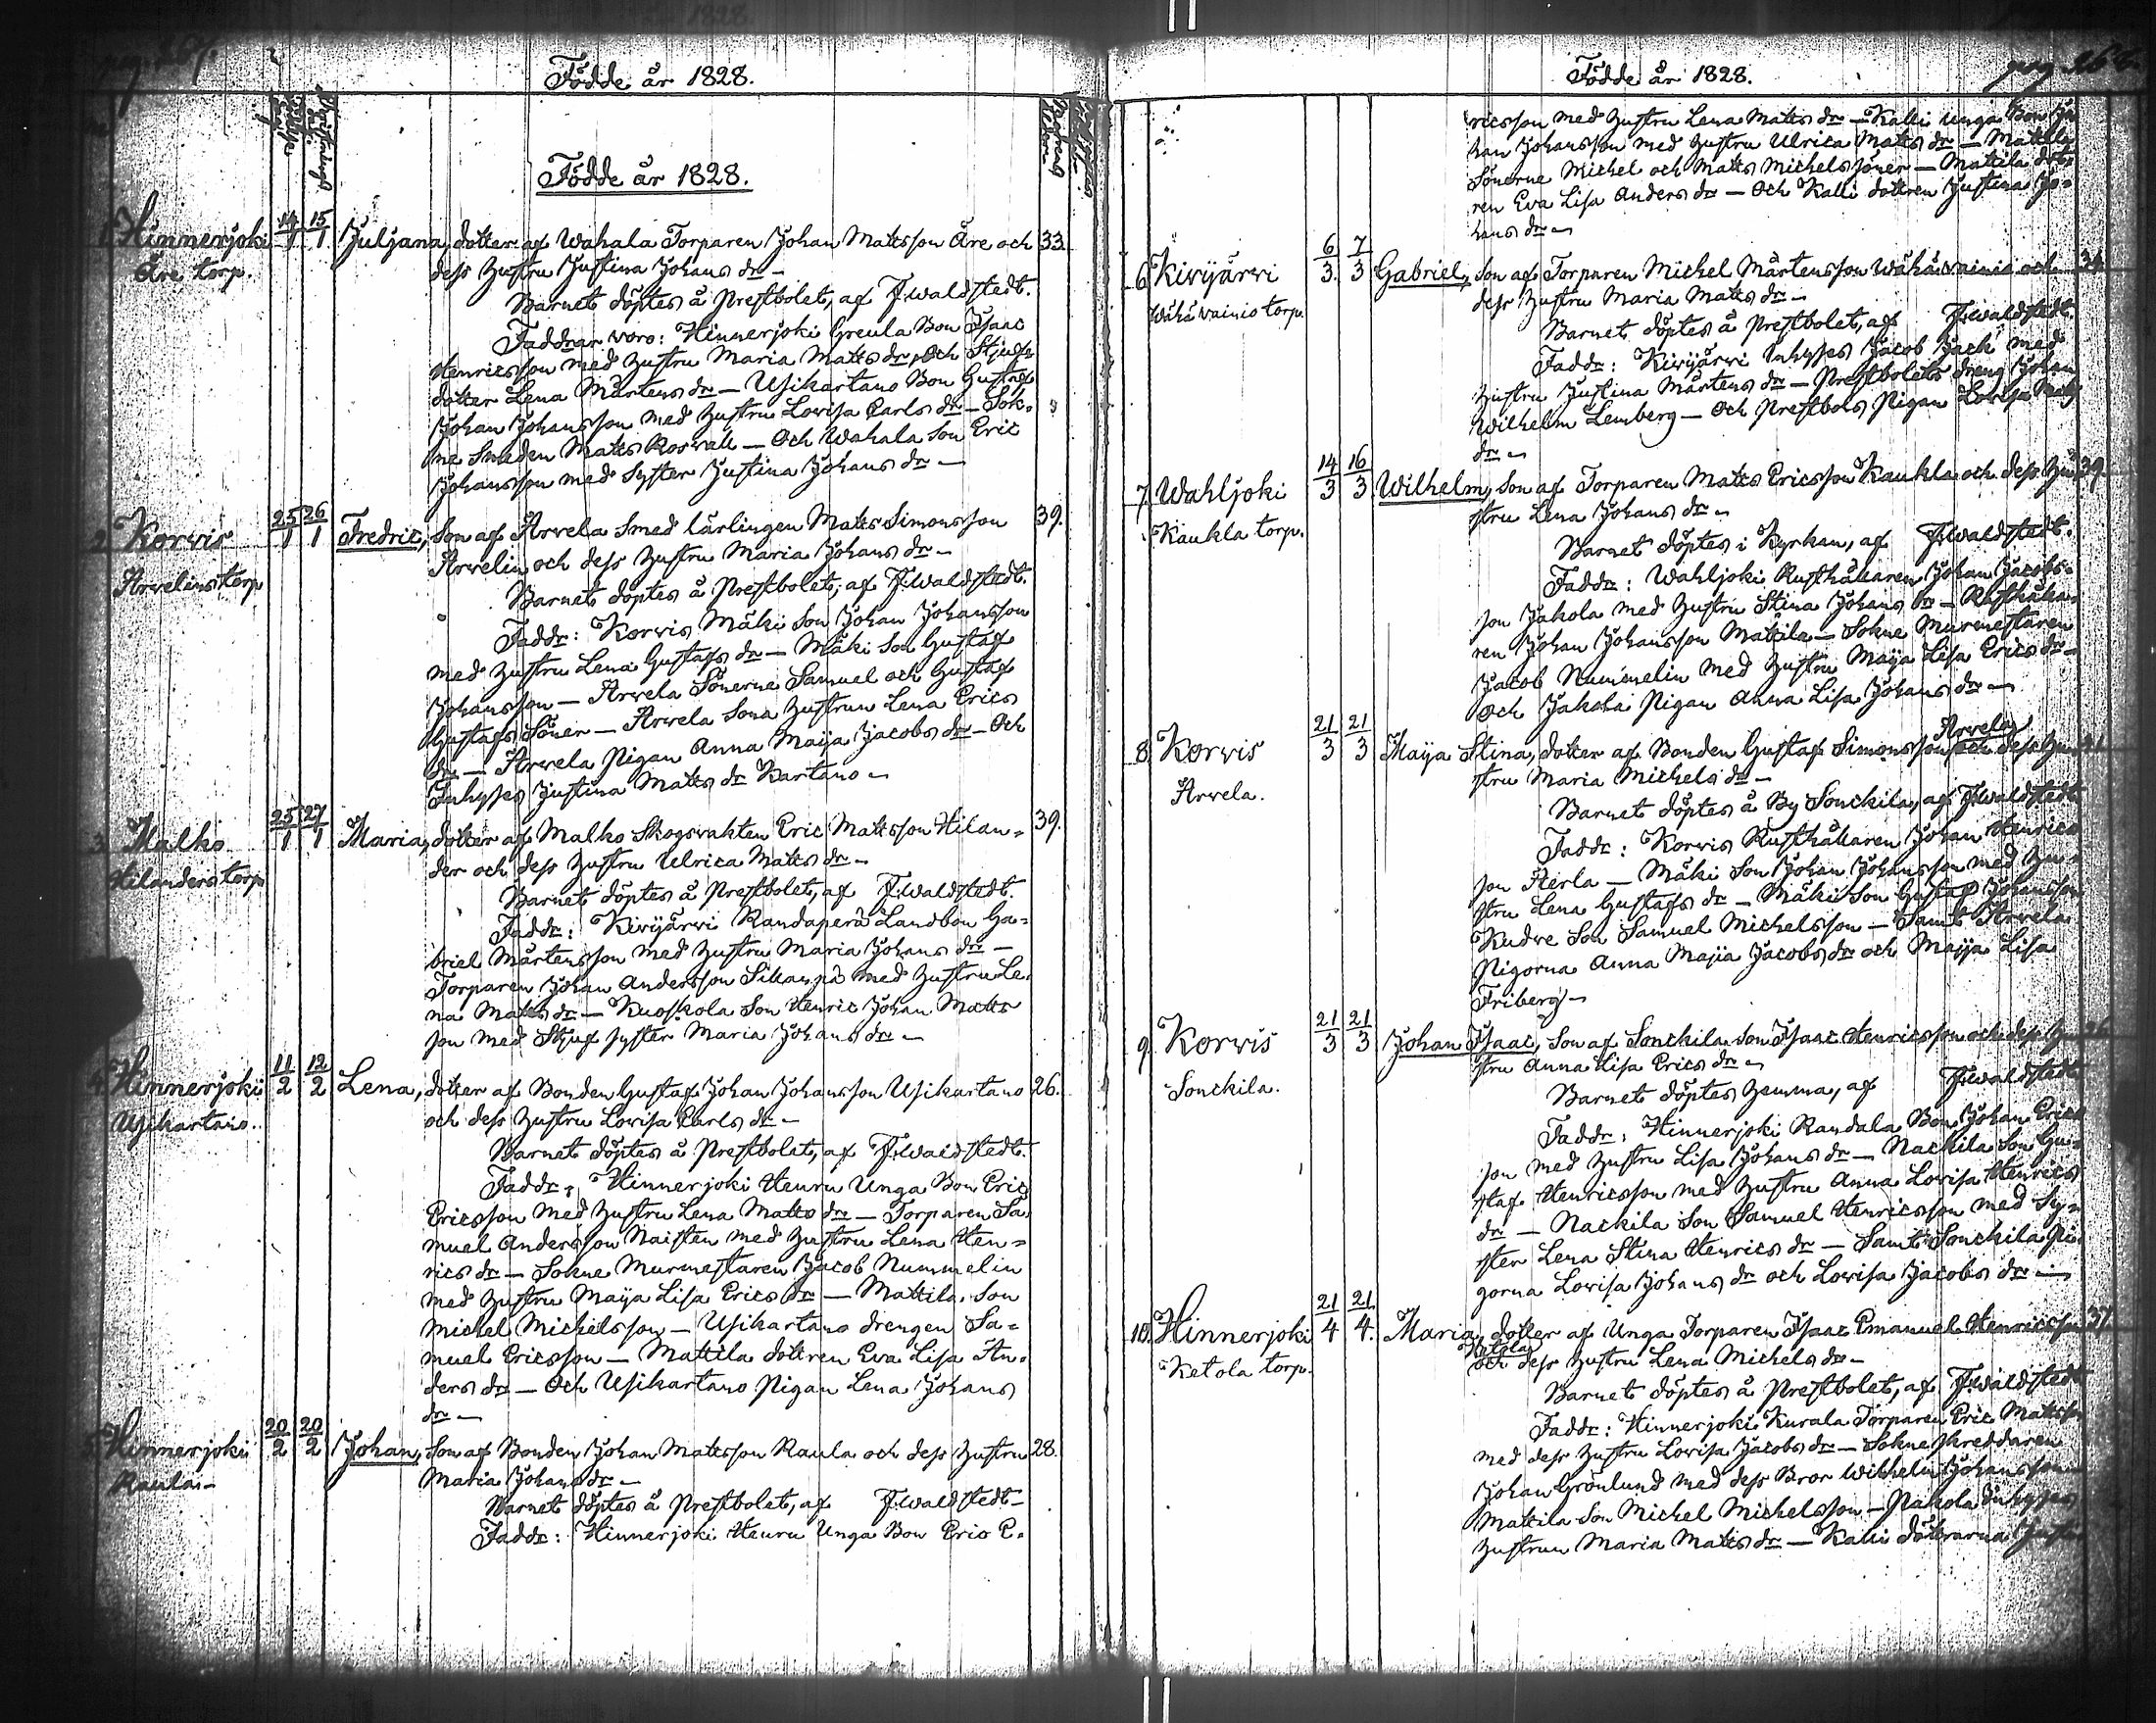 Födde år 1828.
Födde år 1828.
1. Hinnerjoki 14/1 15/1 Juljana, dotter af Wahala Torparen Johan Mattsson Äre och 33.
Äre torp. dess hustru Justina Johans dr –
Barnet döptes å Prestbolet, af F. Waldstedt.
Faddrar voro: Hinnerjoki Greula Bon Isaac
Henricsson med hustru Maria Matts dr, Och Stjuf-
dotter Lena Mårtens dr – Usikartano Bon Gustaf
Johan Johansson med hustru Lovisa Carls dr – Sok-
ne Smeden Matts Rosvall – Och Wahala Son Eric
Johansson med Syster Justina Johans dr –
2. Korvis 25/1 26/1 Fredric, Son af Arvela Smed lärlingen Matts Simonsson 39.
Arvelins torp Arvelin och dess hustru Maria Johans dr –
Barnet döptes å Prestbolet, af F. Waldstedt.
Faddr: Korvis Mäki Son Johan Johansson
med hustru Lena Gustafs dr – Mäki Son Gustaf
Johansson – Arvela Sönerne Samuel och Gustaf
Gustafs Söner – Arvela Sona hustrun Lena Erics
dr – Arvela Pigan Anna Maija Jacobs dr – Och
Inhyses Justina Matts dr Kartano –
3. Malko 25/1 27/1 Maria, dotter af Malko Skogsvakten Eric Mattsson Hilan= 39.
Hilanders torp der och dess hustru Ulrica Matts dr –
Barnet döptes å Prestbolet, af F. Waldstedt.
Faddr: Kivijärvi Randaperä Landbon Ga=
briel Mårtensson med hustru Maria Johans dr –
Torparen Johan Andersson Sikanpä med hustru Le-
na Matts dr – Kuoskola Son Henric Johan Matts
son med Stjuf syster Maria Johans dr –
4. Hinnerjoki 11/2 12/2 Lena, dotter af Bonden Gustaf Johan Johansson Usikartano 26.
Usikartano. och dess hustru Lovisa Carls dr –
Barnet döptes å Prestbolet, af F. Waldstedt.
Faddr: Hinnerjoki Heuru Unga Bon Eric
Ericsson med hustru Lena Matts dr – Torparen Sa-
muel Andersson Naisten med hustru Lena Hen=
rics dr – Sokne Murmestaren Jacob Nummelin
med hustru Maija Lisa Erics dr – Mattila Son
Michel Michelsson – Usikartano drengen Sa=
muel Ericsson – Mattila dottren Eva Lisa An-
ders dr – Och Usikartano Pigan Lena Johans
dr –
5. Hinnerjoki 20/2 20/2 Johan, Son af Bonden Johan Mattsson Raula och dess hustru 28.
Raula – Maria Johans dr –
Barnet döptes å Prestbolet, af F. Waldstedt –
Faddr: Hinnerjoki Heuru Unga Bon Eric E-
pag 268.
Födde år 1828.
ricsson med hustru Lena Matts dr – Kalli Unga Bon Jo
han Johansson med hustru Ulrica Matts dr – Mattila
Sönerne Michel och Matts Michels söner – Mattila dott
ren Eva Lisa Anders dr – Och Kalli dottren Justina Jo-
hans dr –
6. Kivijärvi 6/3 7/3 Gabriel, Son af Torparen Michel Mårtensson Wähävainio och 34.
Wähävainio torp. dess hustru Maria Matts dr –
Barnet döptes å Prestbolet, af F. Waldstedt.
Faddr: Kivijärvi Inhyses Jacob Jack med
hustru Justina Mårtens dr – Prestbolets dreng Johan
Wilhelm Lemberg – Och Prestbols Pigan Lovisa Matts
dr –
7. Wahljoki 14/3 16/3 Wilhelm, Son af Torparen Matts Ericsson Kaukla och dess hu 39.
Kaukla torp. stru Lena Johans dr –
Barnet döptes i Kyrkan, af F. Waldstedt.
Faddr: Wahljoki Rusthållaren Johan Jacobs-
son Jakola med hustru Stina Johans dr – Rusthålla-
ren Johan Johansson Mattila – Sokne Murmestaren
Jacob Nummelin med hustru Maija Lisa Erics dr –
Och Jakola Pigan Anna Lisa Johans dr –
8. Korvis 21/3 21/3 Maija Stina, dotter af Bonden Gustaf Simonsson Arvela och dess hu 41
Arvela. stru Maria Michels dr –
Barnet döptes å By Sonckila, af F. Waldstedt
Faddr: Korvis Rusthållaren Johan Henrics
son Äerla – Mäki Son Johan Johansson med hu-
stru Lena Gustafs dr – Mäki Son Gustaf Johansson
Kudre Son Samuel Michelsson – Samt Arvela
Pigorna Anna Majia Jacobs dr och Maija Lisa
Friberg –
9. Korvis 21/3 21/3 Johan Isaac, Son af Sonckila Son Isaac Henricsson och dess hu 26
Sonckila. stru Anna Lisa Erics dr –
Barnet döptes hemma, af F. Waldstedt
Faddr: Hinnerjoki Randala Bon Johan Erics
son med hustru Lisa Johans dr – Nackila Son Gu-
staf Henricsson med hustru Anna Lovisa Henrics
dr – Nackila Son Samuel Henricsson med Sy=
ster Lena Stina Henrics dr – Samt Sonckila Pi
gorna Lovisa Johans dr och Lovisa Jacobs dr –
10. Hinnerjoki 21/4 21/4 Maria, dotter af Unga Torparen Isaac Emanuel Henricsson 37
Ketola torp. Ketola och dess hustru Lena Michels dr –
Barnet döptes å Prestbolet, af F. Waldstedt
Faddr: Hinnerjoki Kurala Torparen Eric Mattsson
med dess hustru Lovisa Jacobs dr – Sokne skreddaren
Johan Grönlund med dess Bror Wilhelm Johansson –
Mattila Son Michel Michelsson – Pakola Inhyses
hustrun Maria Matts dr – Kalli döttrarna